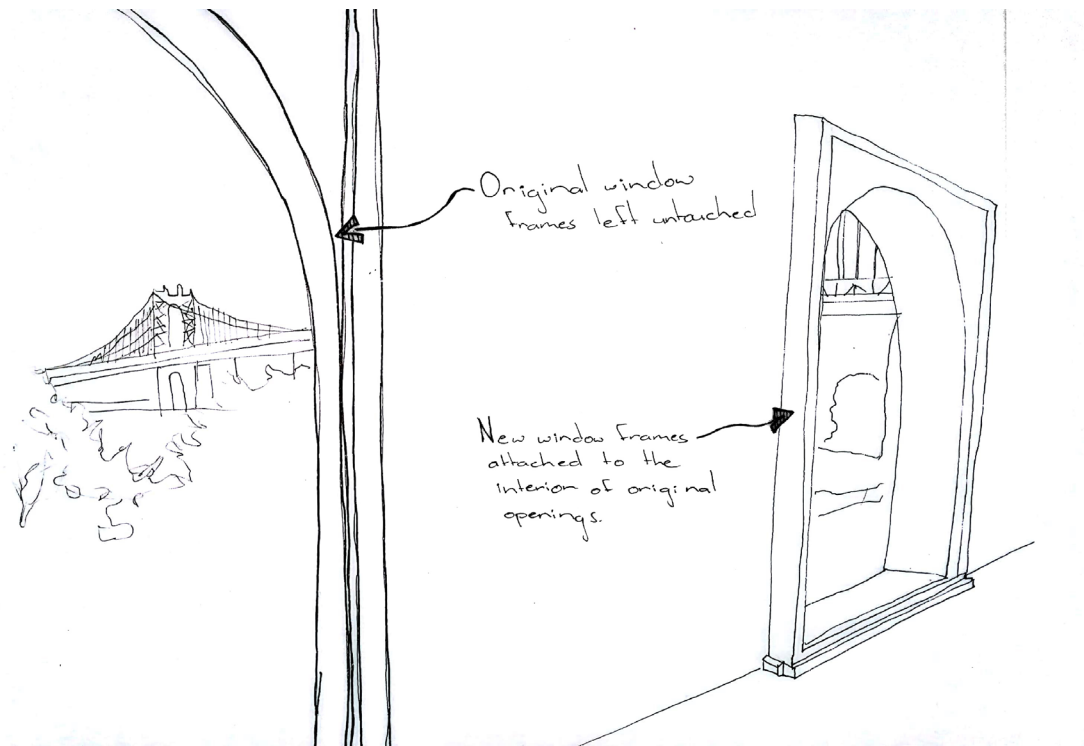 Original window
frames left untouched
New window frames
attached to the
interior of original
openings.